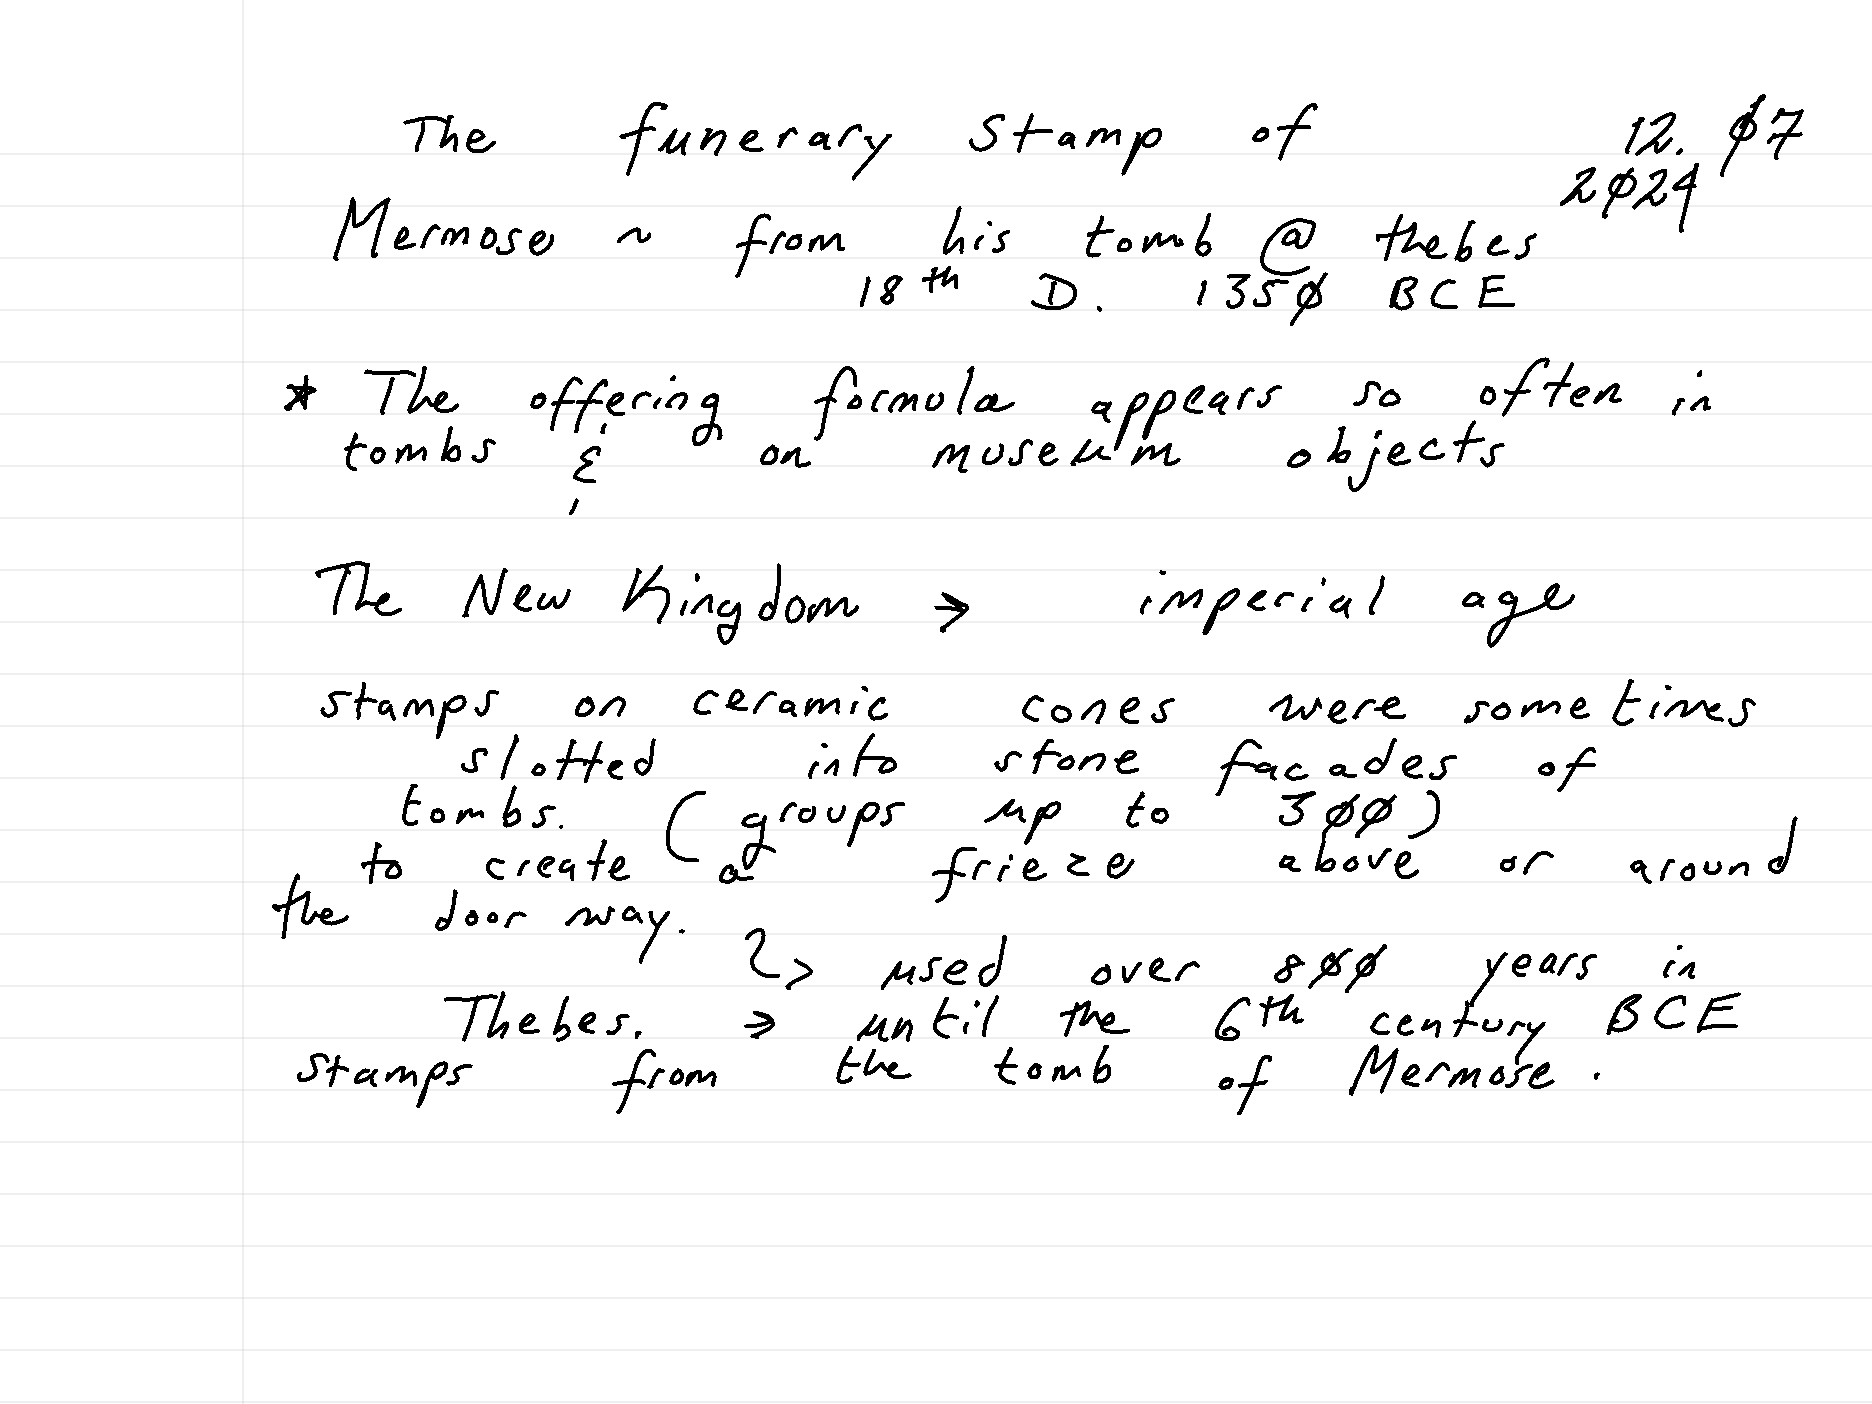 The funerary Stamp of 12. Ø7
2Ø24
Mermose ~ from his tomb @ thebes
18th D. 135Ø BCE
* The offering formula appears so often in
tombs & on museum objects
The New Kingdom → imperial age
stamps on ceramic cones were sometimes
slotted into stone facades of
tombs. (groups up to 3ØØ)
to create a frieze above or around
the door way.
↳ used over 8ØØ years in
Thebes. → until the 6th century BCE
stamps from the tomb of Mermose.